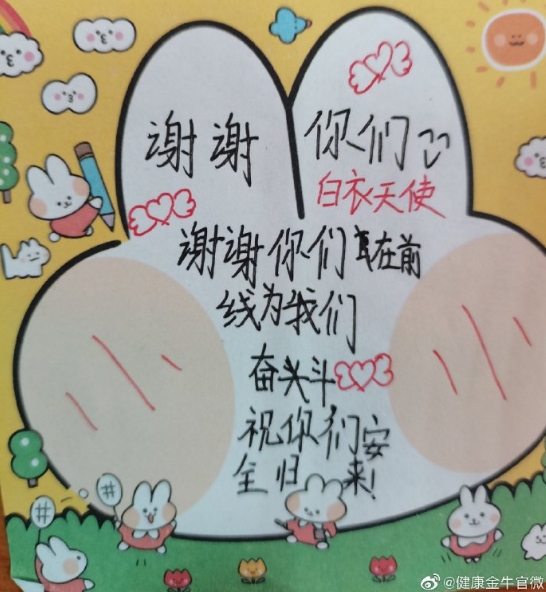 谢谢你们
白衣天使
谢谢你们在前
线为我们
奋头斗
祝你们安
全归来!
@健康金牛官微